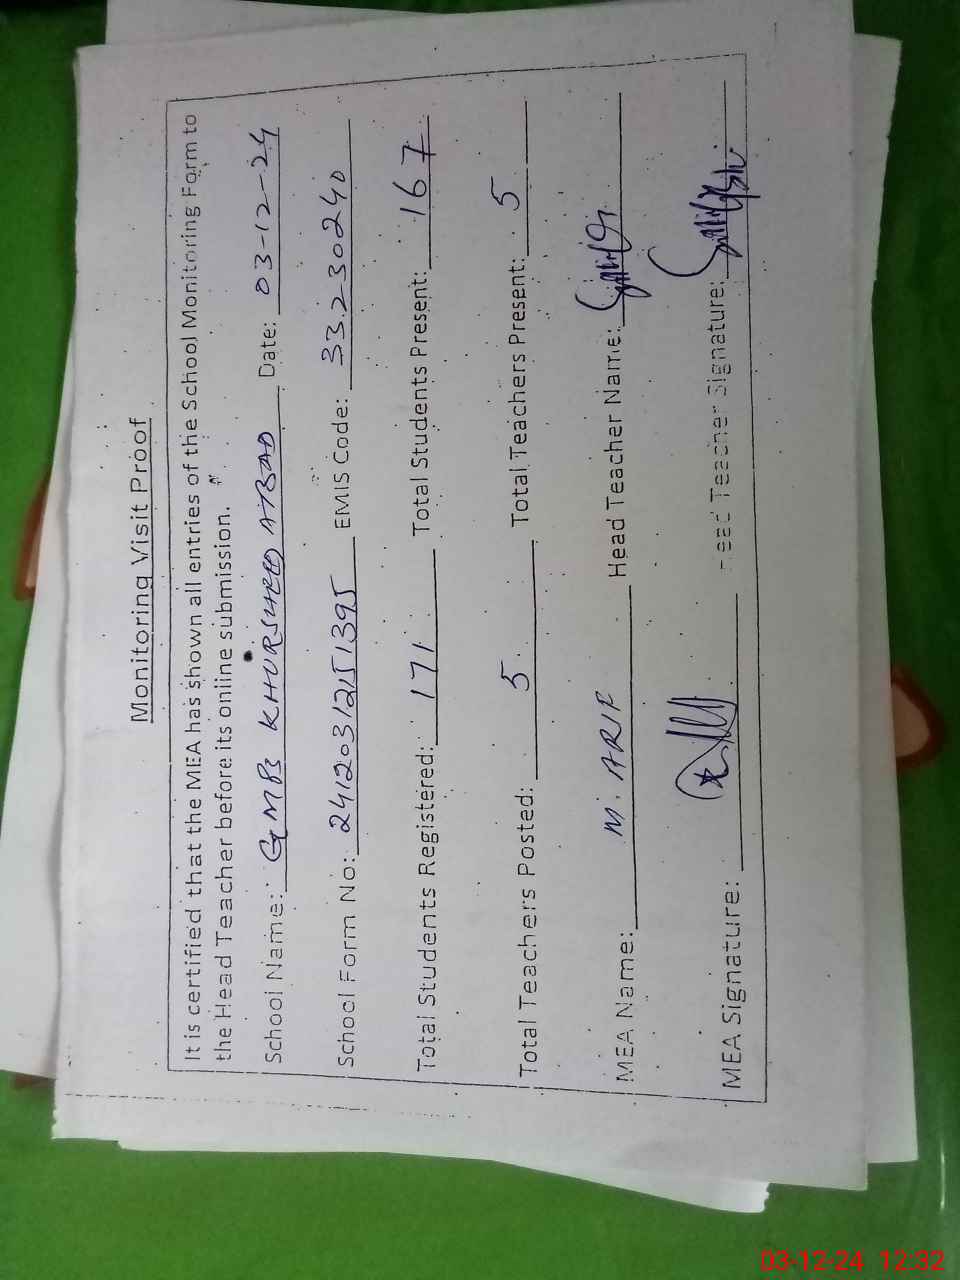 Monitoring Visit Proof
It is certified that the MEA has shown all entries of the School Monitoring Form to
the Head Teacher before its online submission.
School Name: GMPS KHURSHEED ABAD Date: 03-12-24
School Form No: 24120312151395 EMIS Code: 33230240
Total Students Registered: 171 Total Students Present: 167
Total Teachers Posted: 5 Total Teachers Present: 5
MEA Name: M. ARIF Head Teacher Name:
MEA Signature: Head Teacher Signature:
03-12-24 12:32